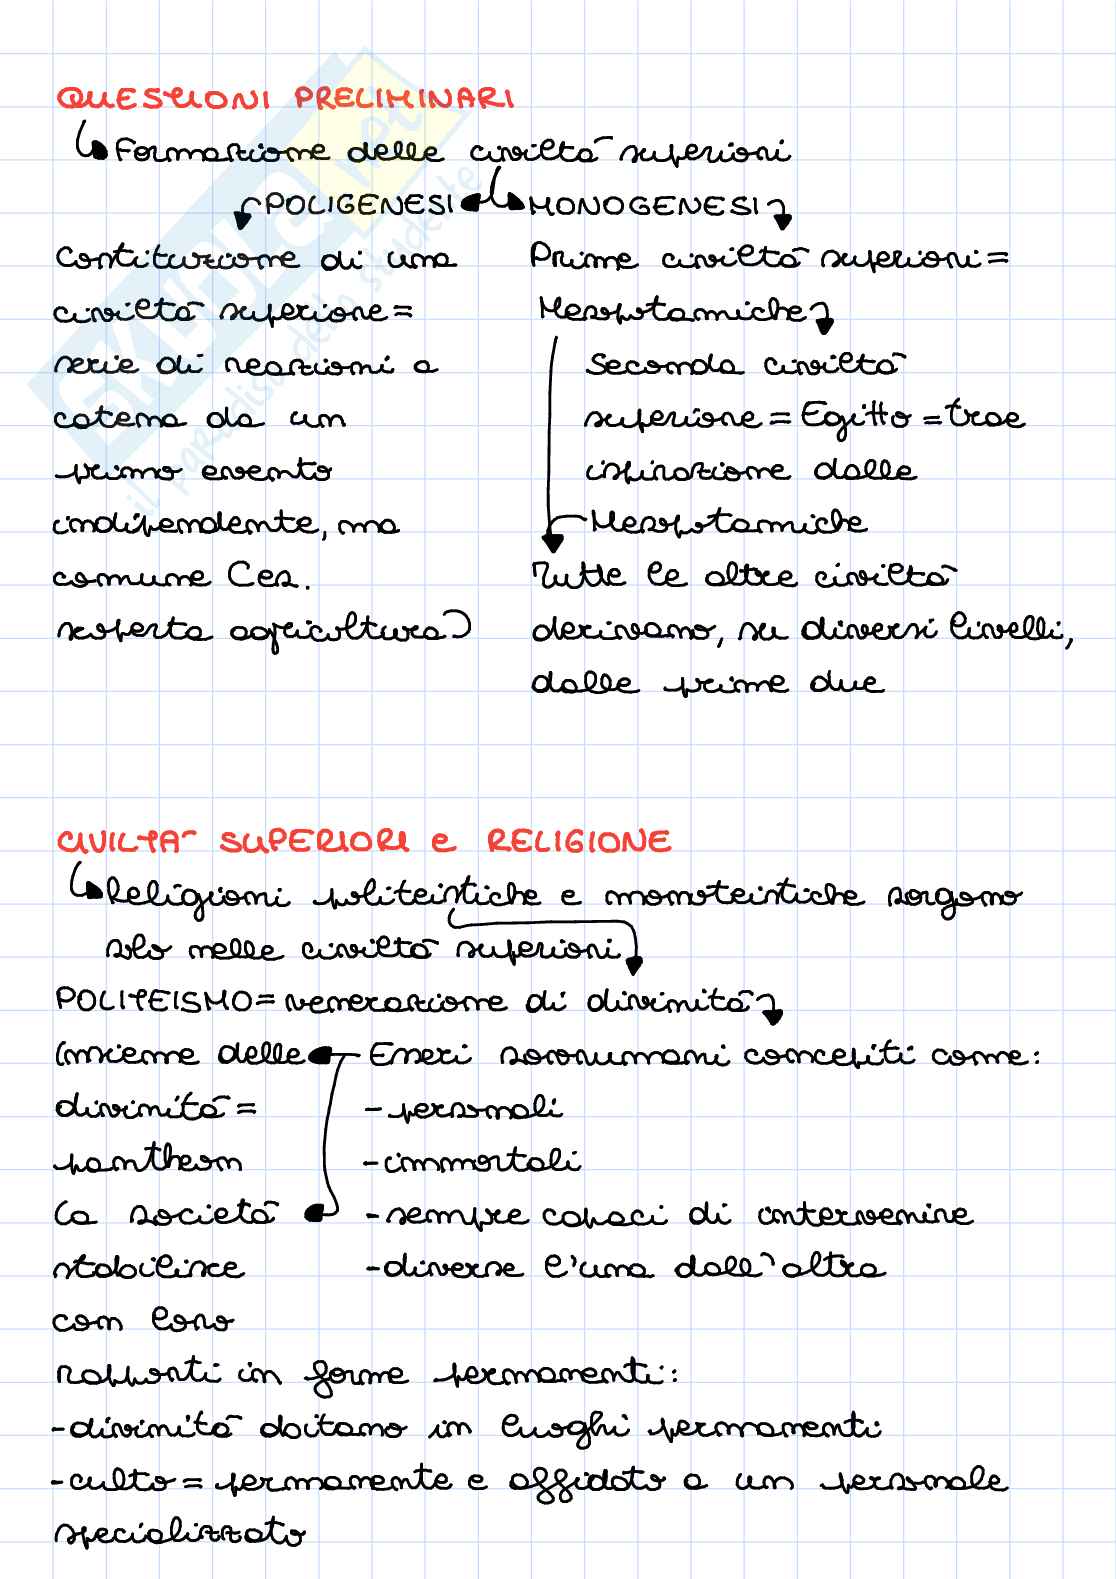 QUESTIONI PRELIMINARI
Formazione delle civiltà superiori
POLIGENESI
MONOGENESI
Costituzione di una
civiltà superiore =
serie di reazioni a
catena da un
primo evento
indipendente, ma
comune (es.
scoperta agricoltura)
Prime civiltà superiori =
Mesopotamiche
Seconda civiltà
superiore = Egitto = trae
ispirazione dalle
Mesopotamiche
Tutte le altre civiltà
derivano, su diversi livelli,
dalle prime due
CIVILTÀ SUPERIORI e RELIGIONE
Religioni politeistiche e monoteistiche sorgono
solo nelle civiltà superiori
POLITEISMO = venerazione di divinità
Insieme delle
divinità =
pantheon
La società
stabilisce
con loro
Esseri sovrumani concepiti come:
- personali
- immortali
- sempre capaci di intervenire
- diverse l'una dall'altra
rapporti in forme permanenti:
- divinità abitano in luoghi permanenti
- culto = permanente e affidato a un personale
specializzato
SKUOLA.net
il paradiso dello studente